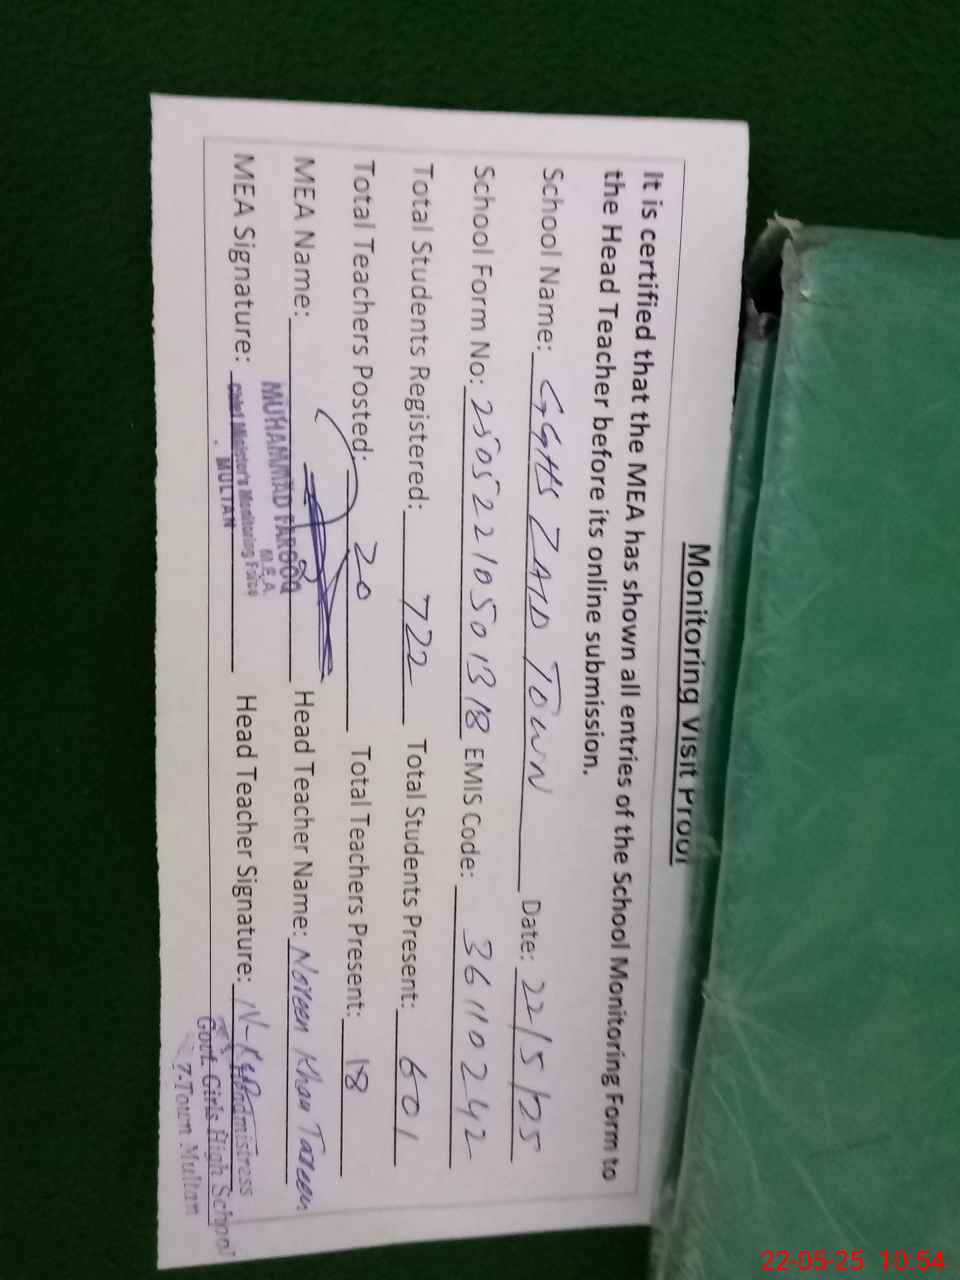 Monitoring Visit Proof
It is certified that the MEA has shown all entries of the School Monitoring Form to
the Head Teacher before its online submission.
School Name: GGHS ZAID TOWN Date: 22/5/25
School Form No: 25052210501318 EMIS Code: 36110242
Total Students Registered: 722 Total Students Present: 601
Total Teachers Posted: 20 Total Teachers Present: 18
MEA Name: Head Teacher Name: Noreen Khan Tareen
MUHAMMAD FAROOQ
M.E.A.
MEA Signature: Head Teacher Signature:
Chief Minister's Monitoring Force
MULTAN
Headmistress
Govt. Girls High School
Z-Town Multan
22-05-25 10:54